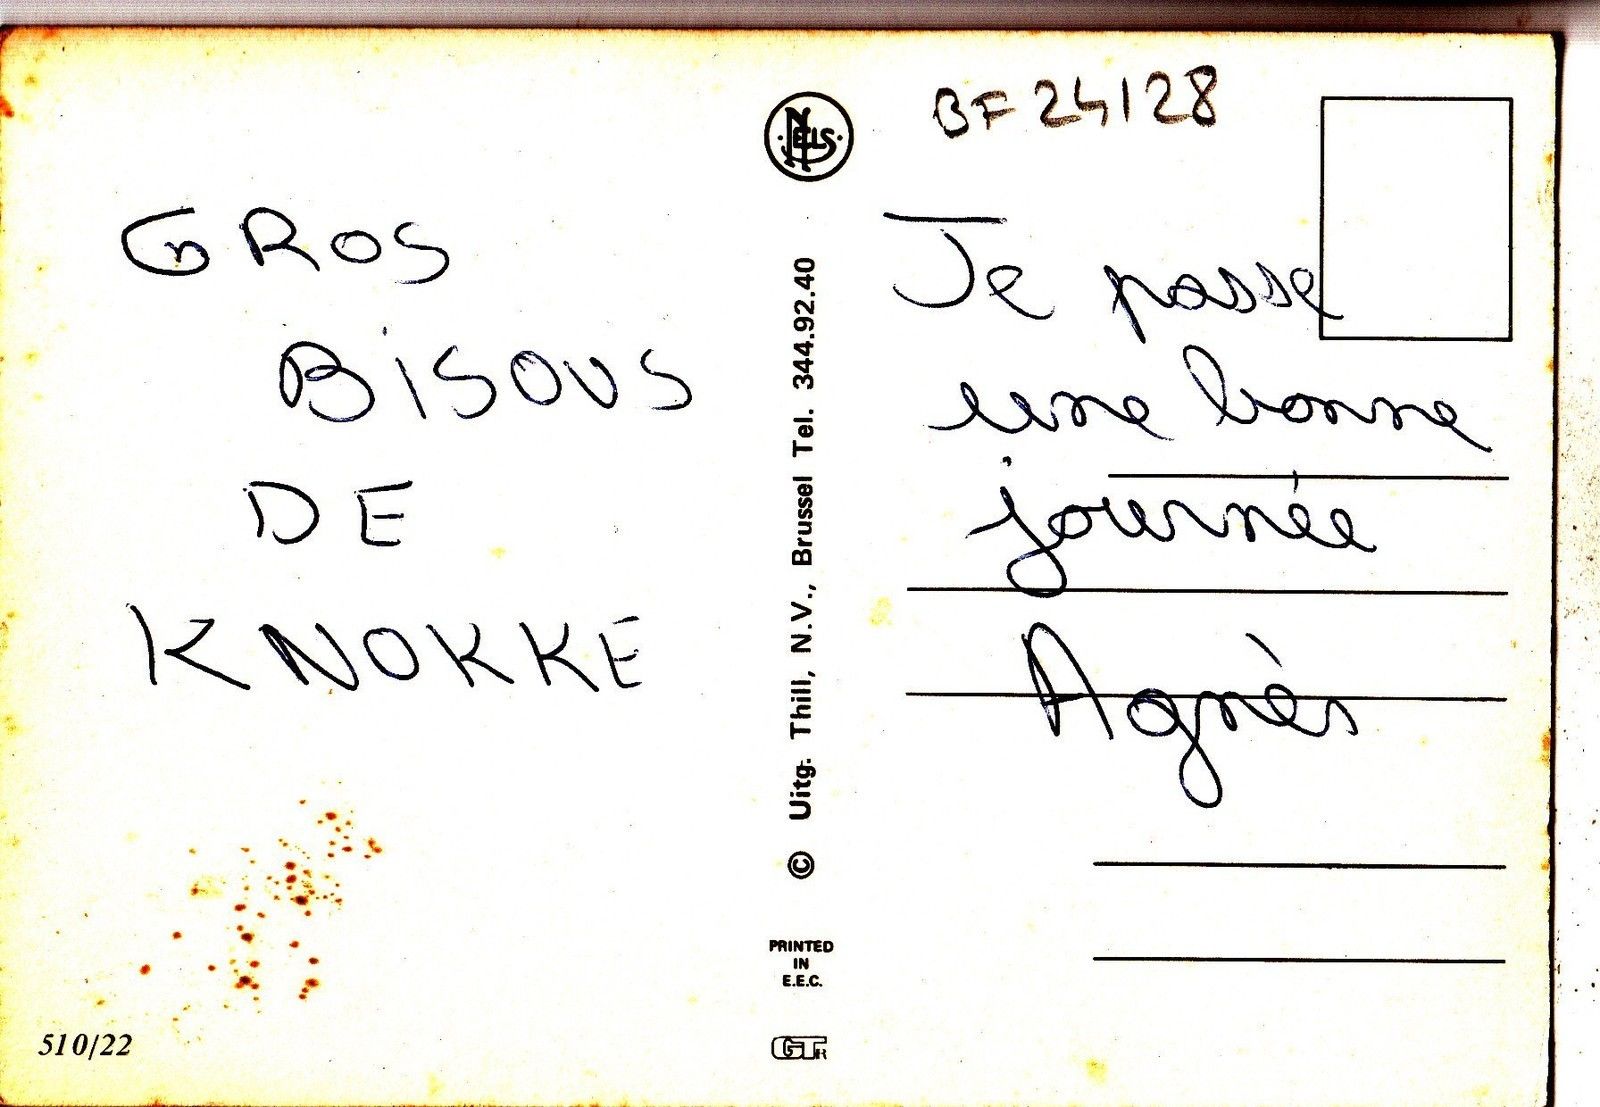 GROS
BISOUS
DE
KNOKKE
510/22
NELS
© Uitg. Thill, N.V., Brussel Tel. 344.92.40
PRINTED
IN
E.E.C.
GTR
BF 24128
Je passe
une bonne
journée
Agnès